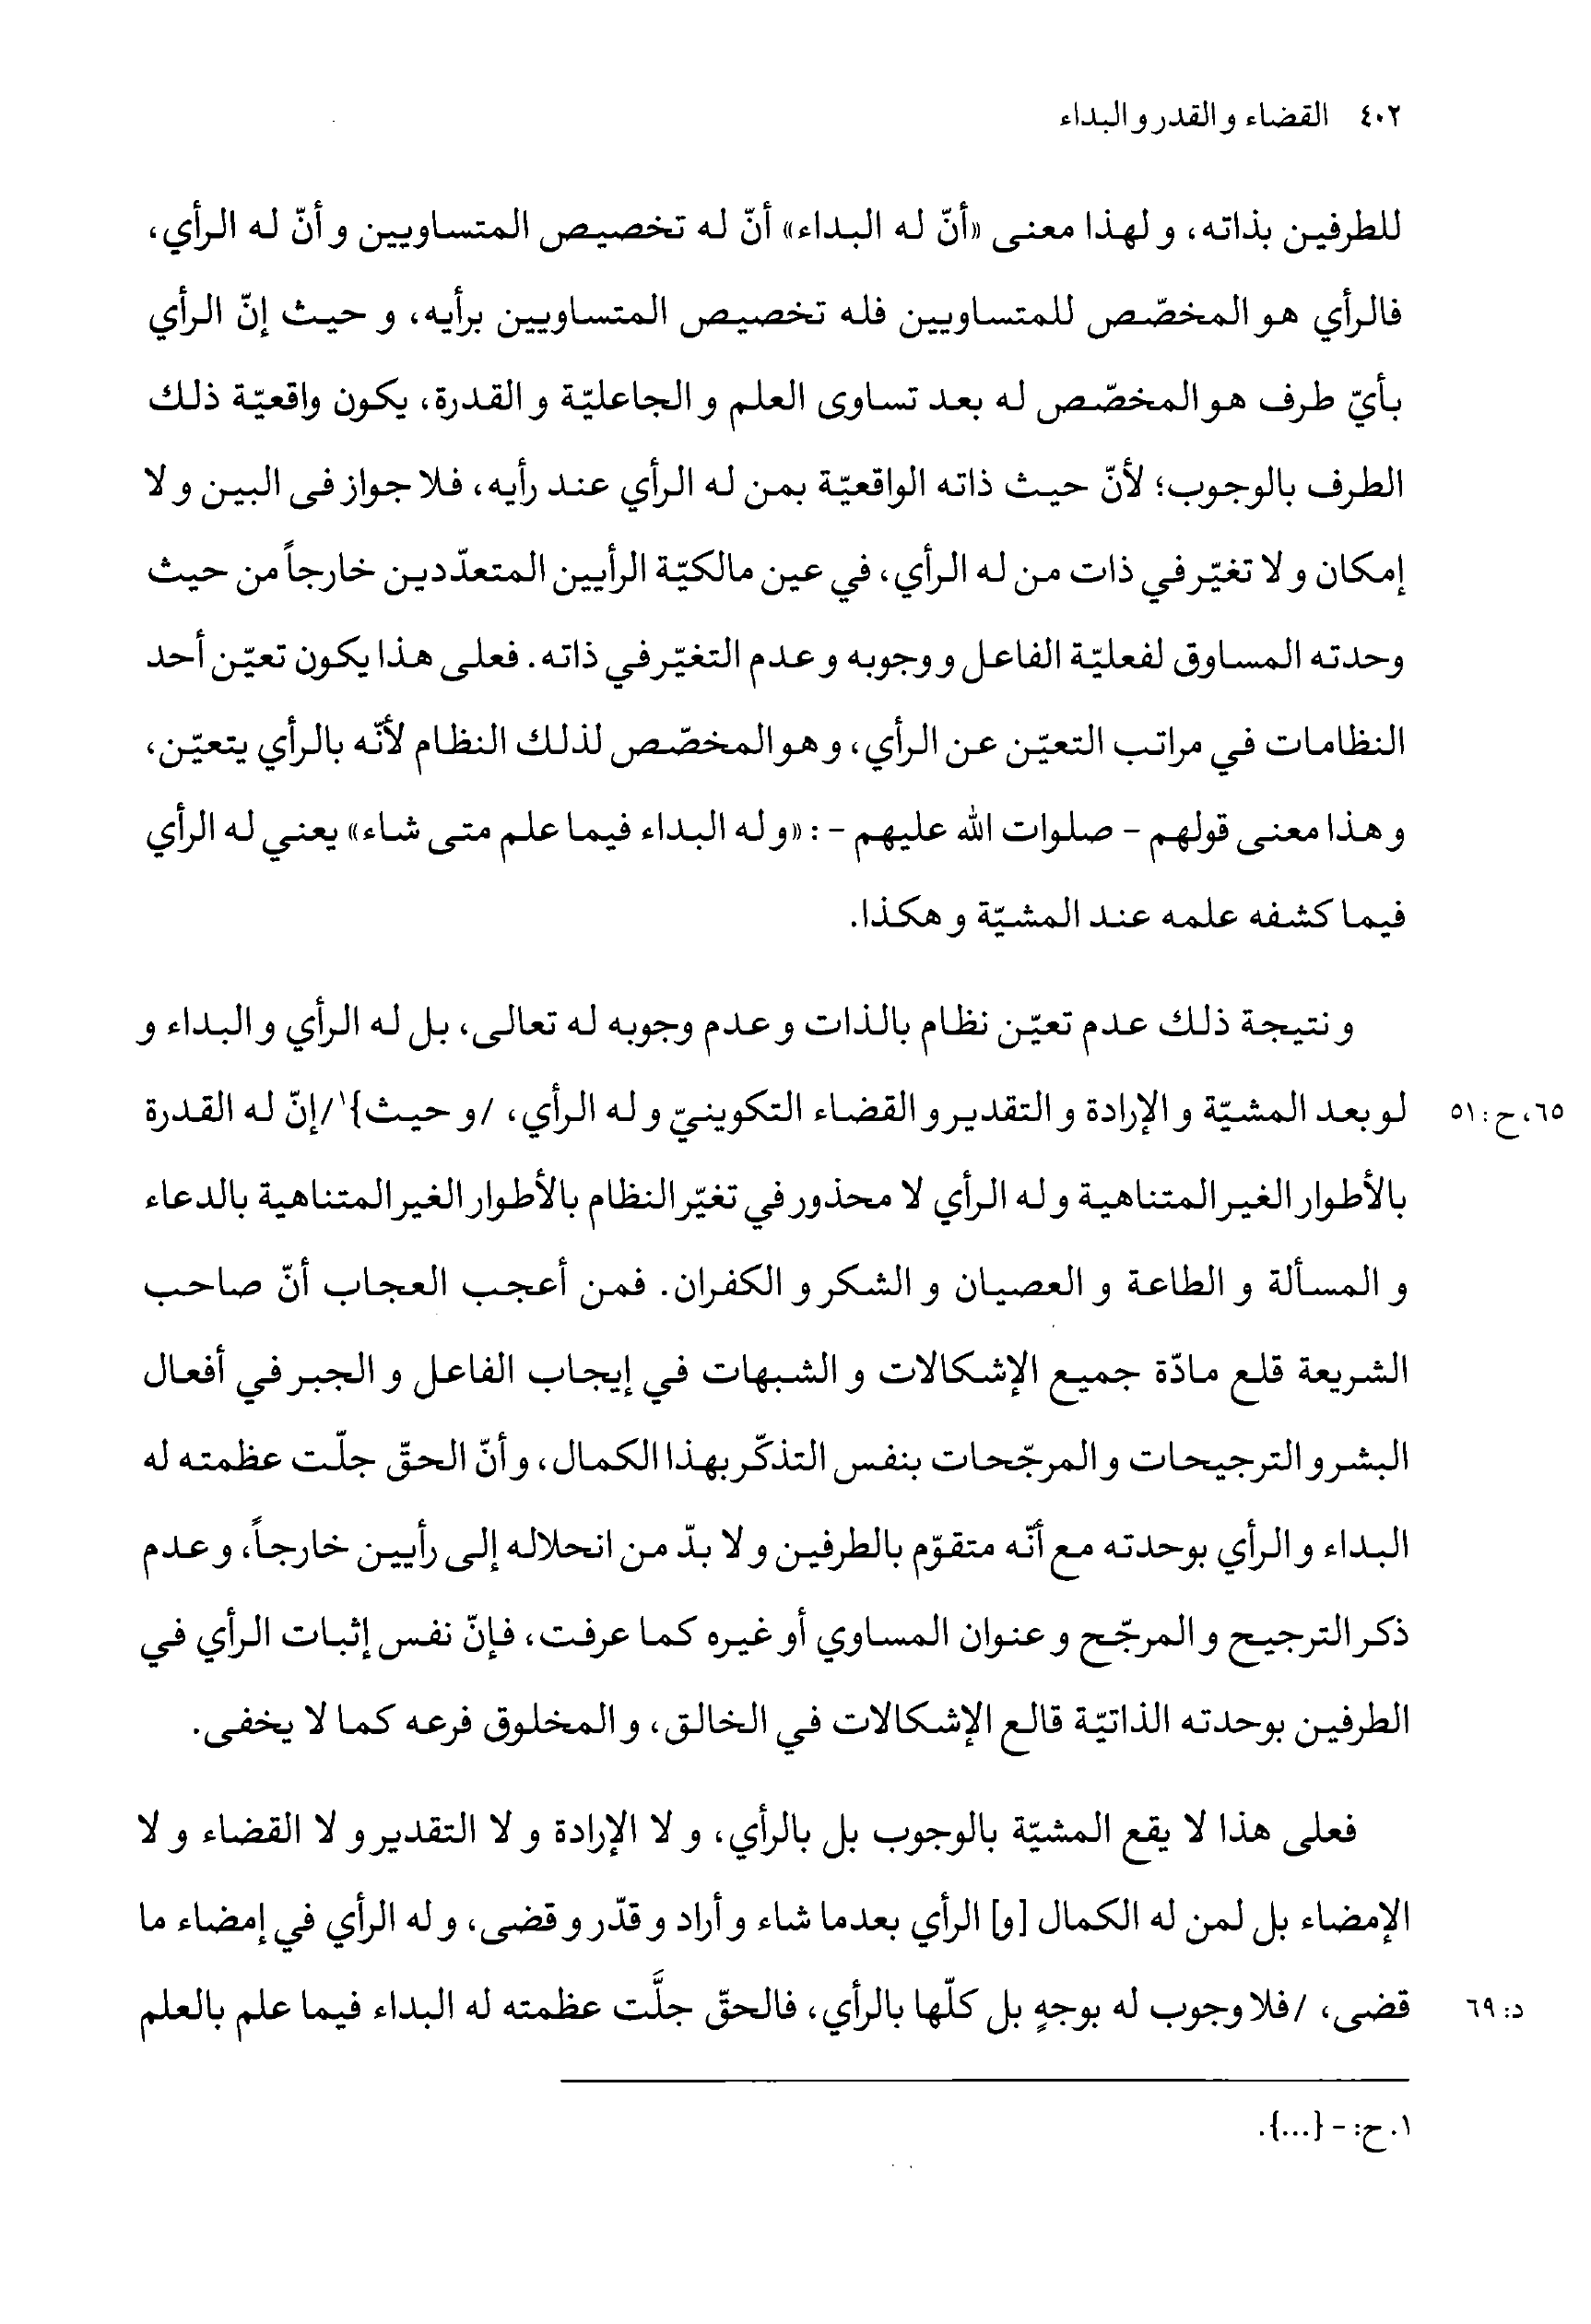 ٤٠٢ القضاء و القدر و البداء
للطرفين بذاته، و لهذا معنى «أنّ له البداء» أنّ له تخصيص المتساويين و أنّ له الرأي،
فالرأي هو المخصّص للمتساويين فله تخصيص المتساويين برأيه، و حيث إنّ الرأي
بأيّ طرف هو المخصّص له بعد تساوى العلم و الجاعليّة و القدرة، يكون واقعيّة ذلك
الطرف بالوجوب؛ لأنّ حيث ذاته الواقعيّة بمن له الرأي عند رأيه، فلا جواز فى البين و لا
إمكان و لا تغيّر في ذات من له الرأي، في عين مالكيّة الرأيين المتعدّدين خارجاً من حيث
وحدته المساوق لفعليّة الفاعل و وجوبه و عدم التغيّر في ذاته. فعلى هذا يكون تعيّن أحد
النظامات في مراتب التعيّن عن الرأي، و هو المخصّص لذلك النظام لأنّه بالرأي يتعيّن،
و هذا معنى قولهم - صلوات الله عليهم - : «و له البداء فيما علم متى شاء» يعني له الرأي
فيما كشفه علمه عند المشيّة و هكذا.
و نتيجة ذلك عدم تعيّن نظام بالذات و عدم وجوبه له تعالى، بل له الرأي و البداء و
لو بعد المشيّة و الإرادة و التقدير و القضاء التكوينيّ و له الرأي، /و حيث}١/إنّ له القدرة
٦٥، ح: ٥١
بالأطوار الغير المتناهية و له الرأي لا محذور في تغيّر النظام بالأطوار الغير المتناهية بالدعاء
و المسألة و الطاعة و العصيان و الشكر و الكفران. فمن أعجب العجاب أنّ صاحب
الشريعة قلع مادّة جميع الإشكالات و الشبهات في إيجاب الفاعل و الجبر في أفعال
البشر و الترجيحات و المرجّحات بنفس التذكّر بهذا الكمال، و أنّ الحقّ جلّت عظمته له
البداء و الرأي بوحدته مع أنّه متقوّم بالطرفين و لا بدّ من انحلاله إلى رأيين خارجاً، و عدم
ذكر الترجيح و المرجّح و عنوان المساوي أو غيره كما عرفت، فإنّ نفس إثبات الرأي في
الطرفين بوحدته الذاتيّة قالع الإشكالات في الخالق، و المخلوق فرعه كما لا يخفى.
فعلى هذا لا يقع المشيّة بالوجوب بل بالرأي، و لا الإرادة و لا التقدير و لا القضاء و لا
الإمضاء بل لمن له الكمال [و] الرأي بعدما شاء و أراد و قدّر و قضى، و له الرأي في إمضاء ما
قضى، /فلا وجوب له بوجهٍ بل كلّها بالرأي، فالحقّ جلَّت عظمته له البداء فيما علم بالعلم
د: ٦٩
١. ح: - {...}.